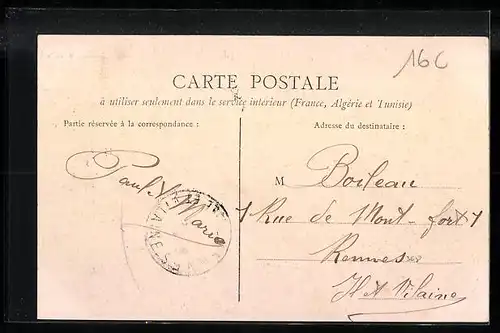 16C
CARTE POSTALE
à utiliser seulement dans le service intérieur (France, Algérie et Tunisie)
Partie réservée à la correspondance :
Adresse du destinataire :
Paul & Marie
M Boileau
7 Rue de Mont-fort 7
Rennes
Il et Vilaine